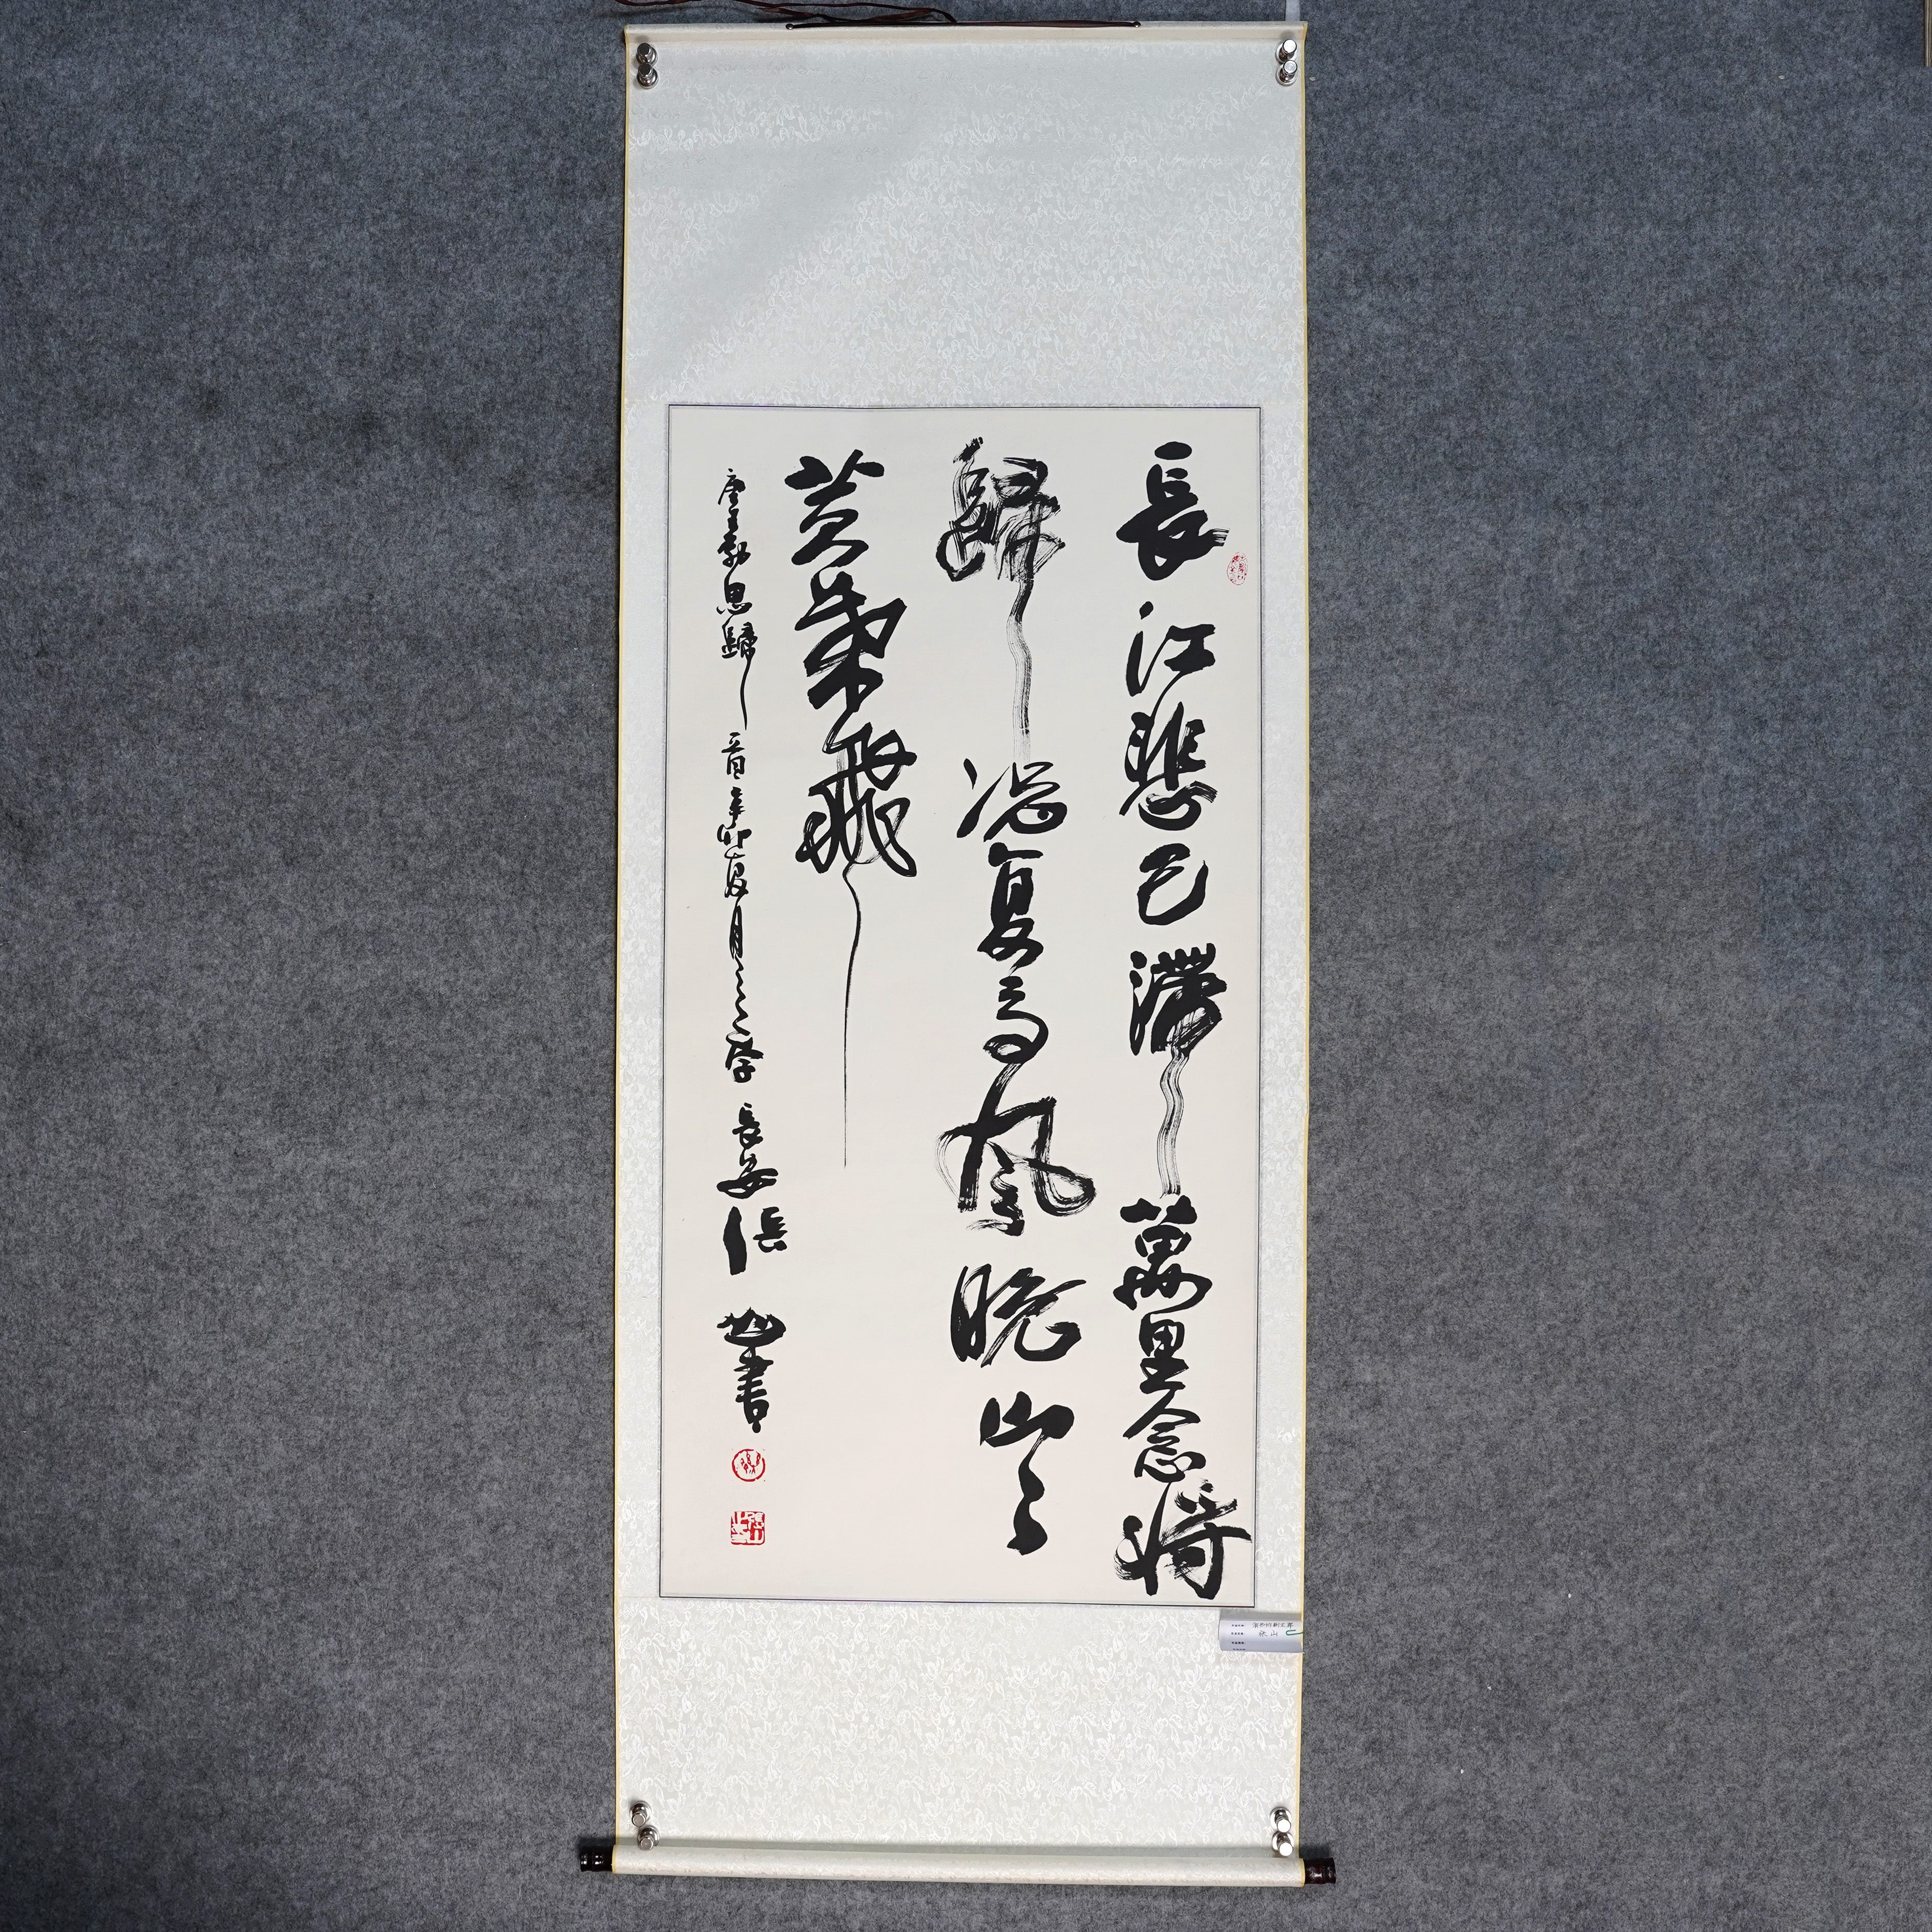 長江悲已滯萬里念將
歸况復高風晚山〻
黃葉飛
唐王勃思歸一首辛卯夏月之學長安張山書